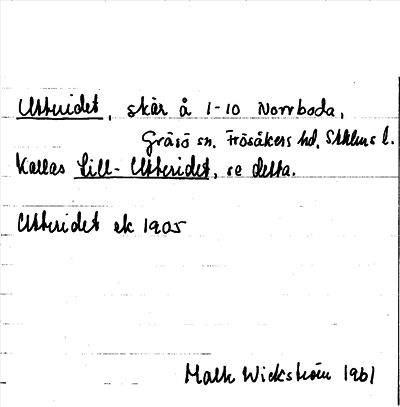 Utteridet, skär å 1-10 Norrboda,
Gräsö sn. Frösåkers hd, Sthlms l.
Kallas Lill-Utteridet, se detta.
Utteridet ek 1905
Math Wickström 1961